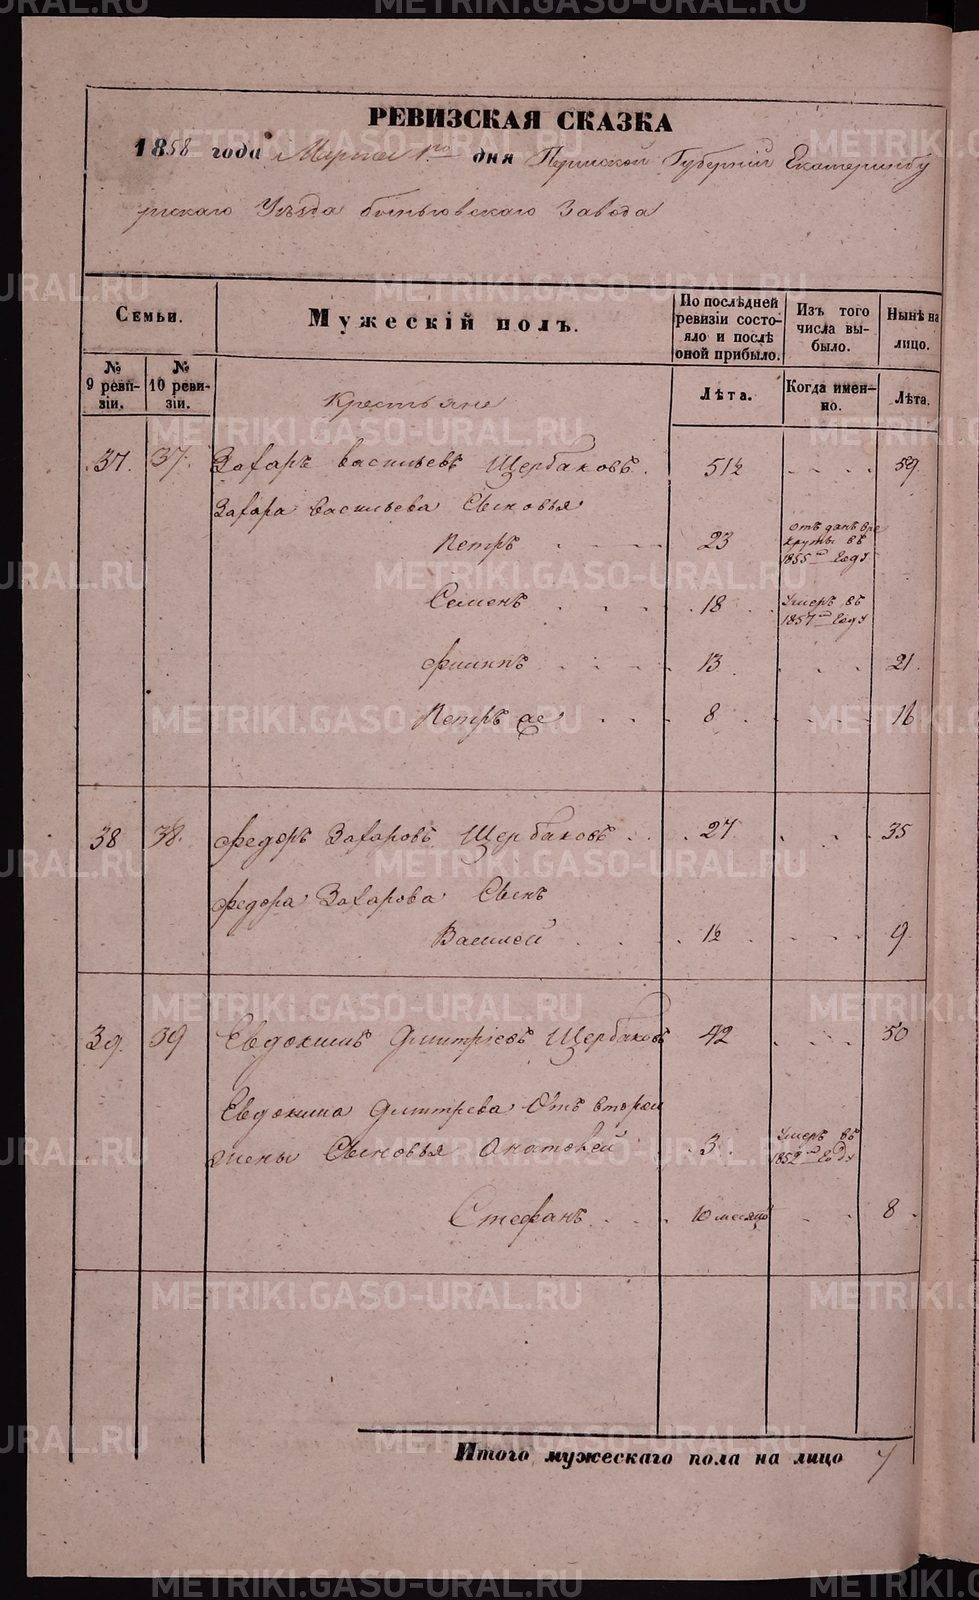 РЕВИЗСКАЯ СКАЗКА
1858 года Марта 1го дня Пермской Губерніи Екатеринбу
ргскаго Уѣзда Завода
Семьи.
Мужескій полъ.
По послѣдней ревизіи состояло и послѣ оной прибыло.
Изъ того числа выбыло.
Нынѣ на лицо.
№ 9 ревизіи.
№ 10 ревизіи.
Лѣта.
Когда именно.
Лѣта.
Крестьяне
37. 37. Захаръ Васильевъ Щербаковъ. 51½ 59.
Захара Васильева Сыновья
Петръ 23 отъ данъ вре
круты въ
1855мъ Году
Семенъ 18 Умеръ въ
1857мъ Году
Филипъ 13 21.
Петръ же 8 16
38 38. Федоръ Захаровъ Щербаковъ 27 35
Федора Захарова Сынъ
Василей 1½ 9
39. 39 Евдокимъ Дмитріевъ Щербаковъ 42 50
Евдокима Дмитрева Отъ второй
жены Сыновья Анатолей 3. Умеръ въ
1852мъ Году
Стефанъ 10 месяцъ 8
Итого мужескаго пола на лицо 7
METRIKI.GASO-URAL.RU